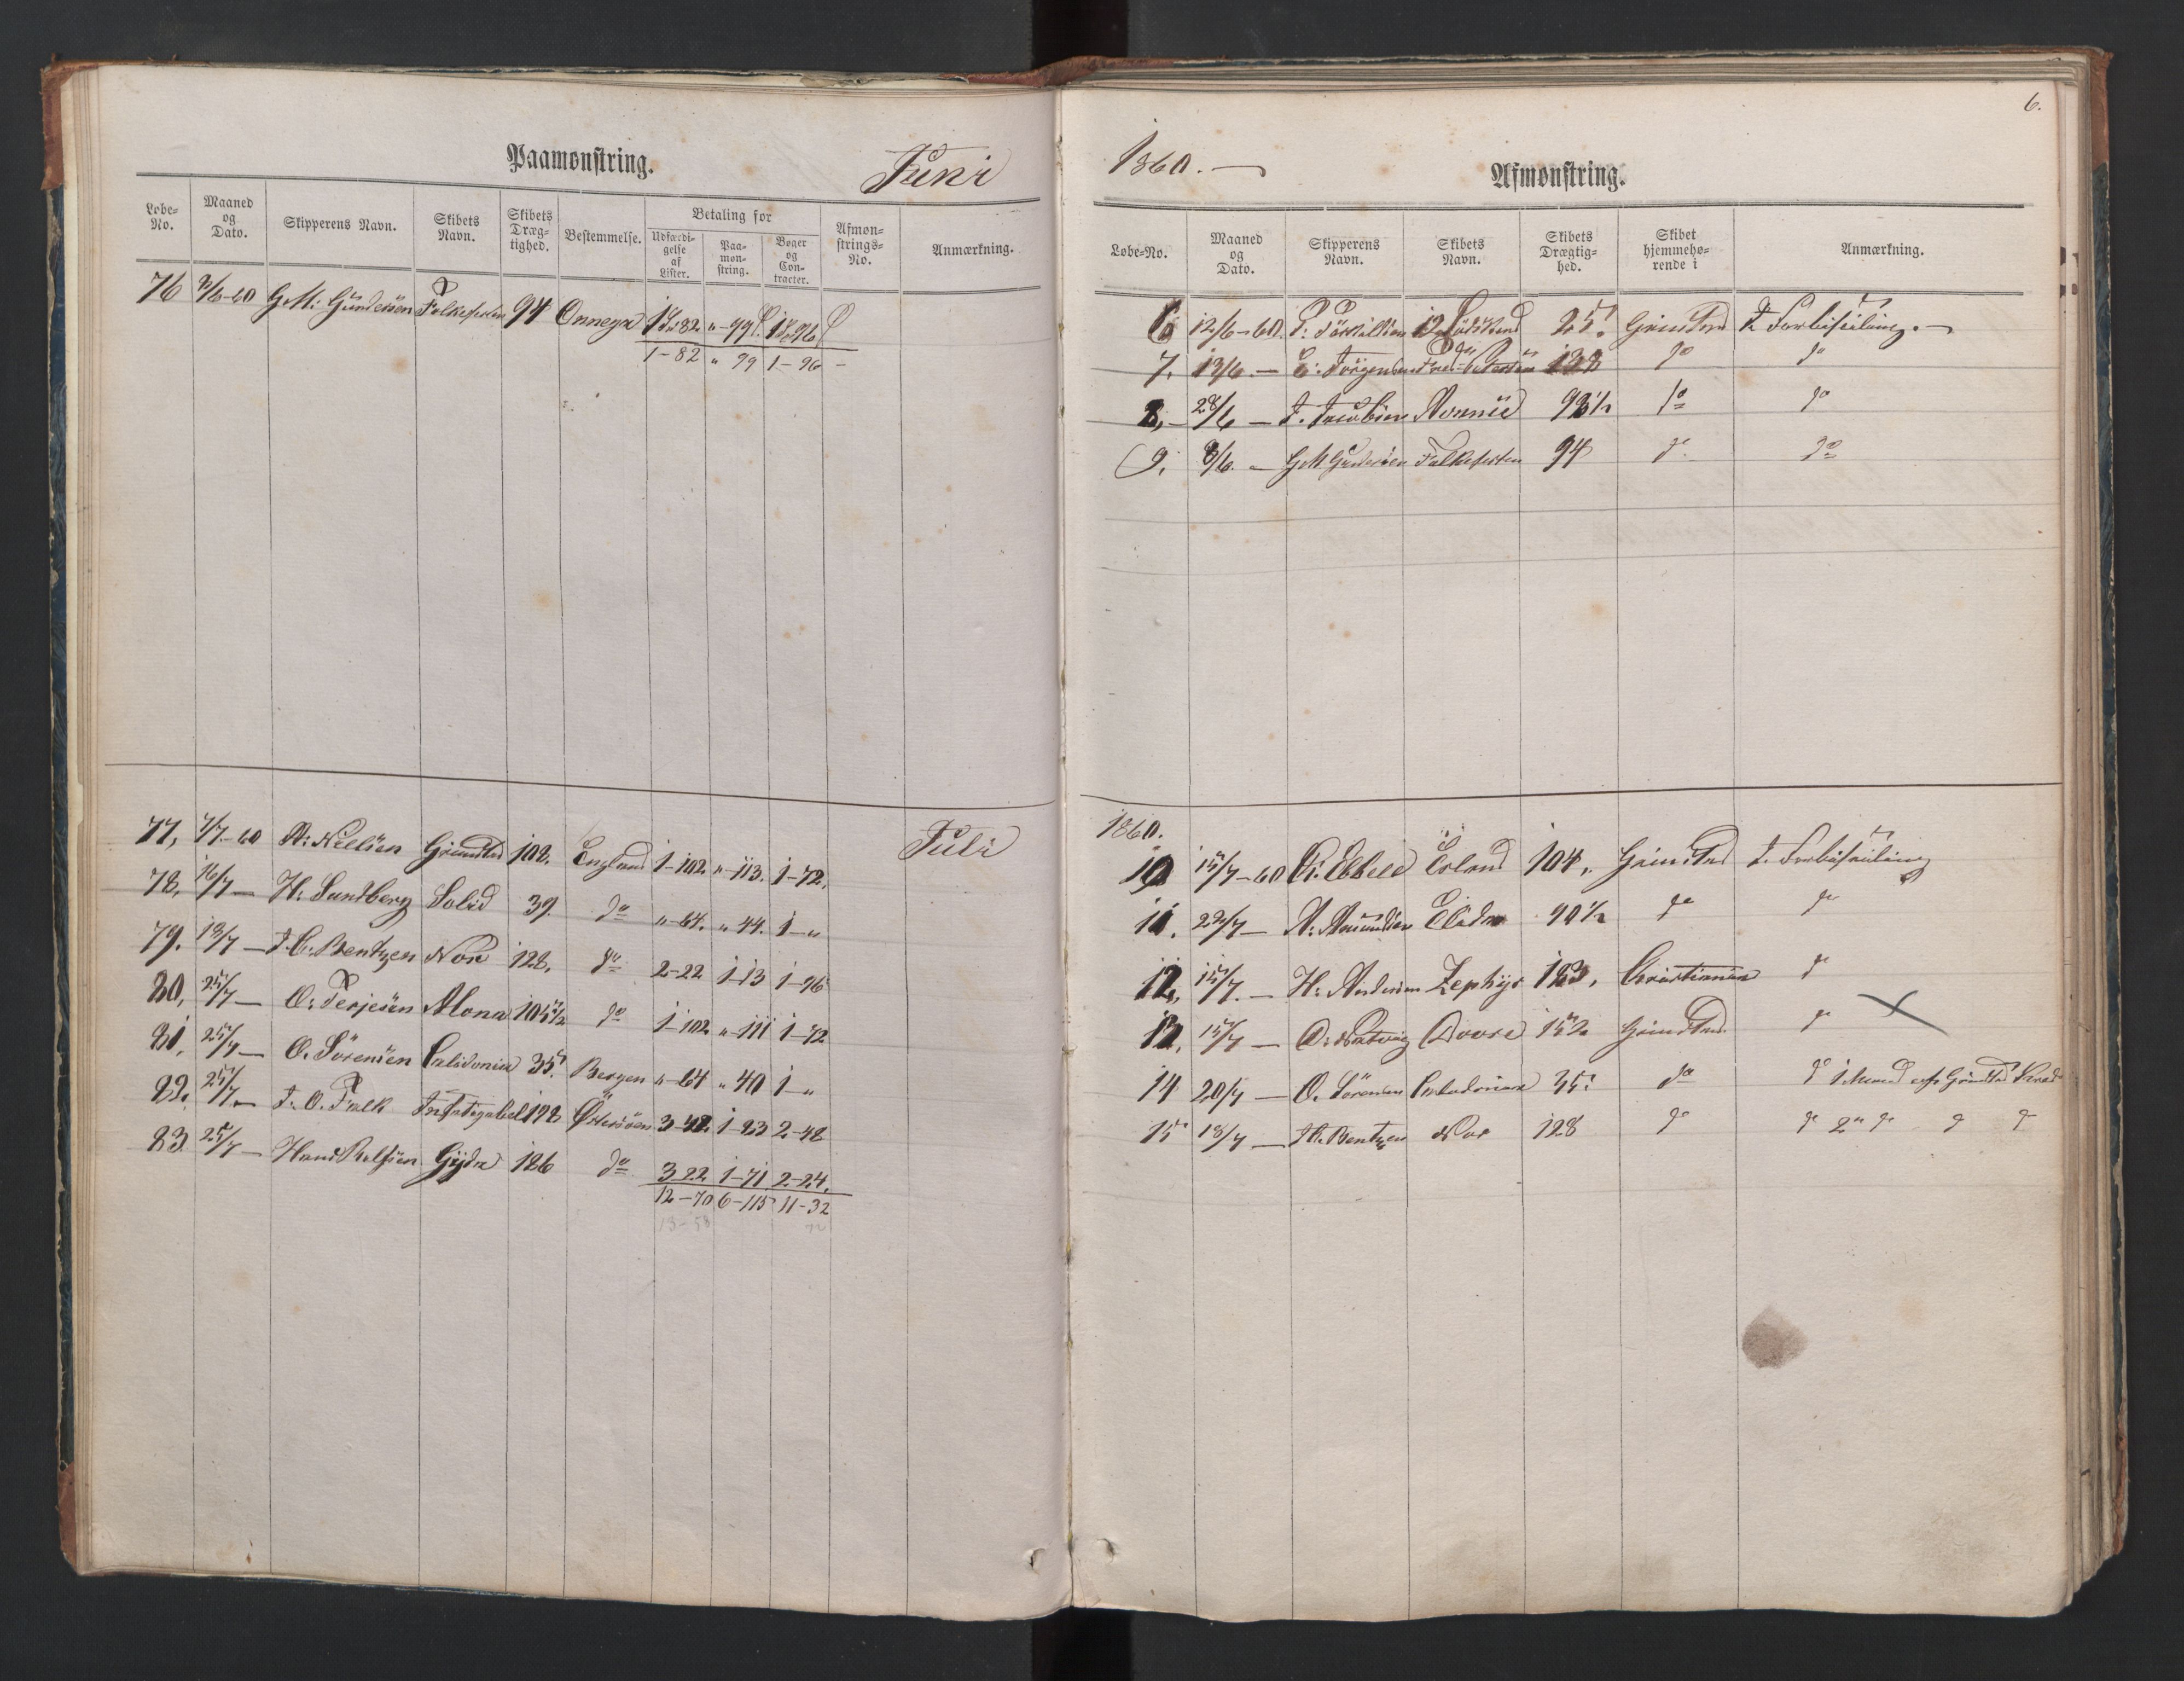 Paamønstring. Juni
Løbe-No. Maaned og Dato. Skipperens Navn. Skibets Navn. Skibets Drægtighed. Bestemmelse. Betaling for Udfærdigelse af Lister. Paamønstring. Bøger og Contracter. Afmønstrings-No. Anmærkning.
76 G. M. Gundersen 94 Onnega
1-82 " 99 1-96
Juli
77, 7/7-60 N. Nielsen Grimstad 102. England 1-102. "-113. 1-72.
78, 16/7 — H. Sundberg Solid 39. do "-64. "-44. 1-"
79. 18/7 — J. C. Bentzen Nor 128. do 2-22 1-13 1-96
80, 25/7 — O. Terjesen Alona 105 1/2 do 1-102 "-111 1-72
81, 25/7 — O. Sörensen Calidonia 35. Bergen "-64 "40 1-"
82. 25/7 — J. O. Falk Infatigabel 198 Østersöen 3-42. 1-83 2-48
83 25/7 — Hans Rolfsen Gyda 186 do 3-22 1-71 2-24.
12-70 6-115 11-32
13-58 72
6.
1860. — Afmønstring.
Løbe-No. Maaned og Dato. Skipperens Navn. Skibets Navn. Skibets Drægtighed. Skibet hjemmehørende i Anmærkning.
6 12/6-60. 25. Grimstad F. Forbiseiling. —
7. 13/6. — E. Jörgensen 138 do do
8, 28/6 — J. Jacobsen 93 1/2 do do
9. 8/6. — G M Gundersen 94 do do
1860.
10 15/7-60 Erland 104. Grimstad F. Forbiseiling
11. 22/7 — A. Amundsen Elida 90 1/2 do do
12, 15/7. — H. Andersen Zephyr 183, Christiania do
13, 15/7 — O. Natvig Dovre 152 Grimstad. do
14 20/7 — O. Sörensen Calidonia 35. do do 1 Mand afs Grimstad
15 18/7 — Bentzen Nor 128 do do 2 do do do